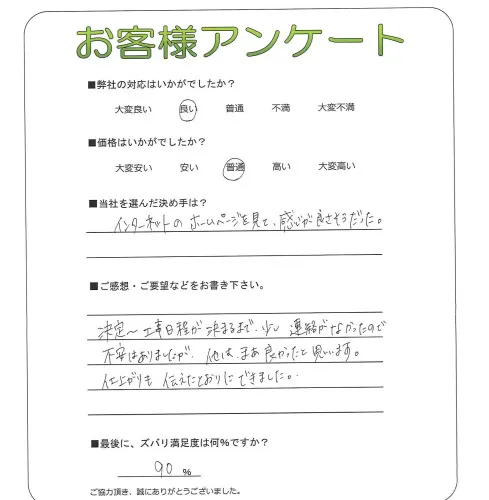 お客様アンケート
■弊社の対応はいかがでしたか？
大変良い 良い 普通 不満 大変不満
■価格はいかがでしたか？
大変安い 安い 普通 高い 大変高い
■当社を選んだ決め手は？
インターネットのホームページを見て、感じが良さそうだった。
■ご感想・ご要望などをお書き下さい。
決定〜工事日程が決まるまで、少し連絡がなかったので
不安はありましたが、他は、まあ良かったと思います。
仕上がりも伝えたとおりにできました。
■最後に、ズバリ満足度は何%ですか？
90 %
ご協力頂き、誠にありがとうございました。